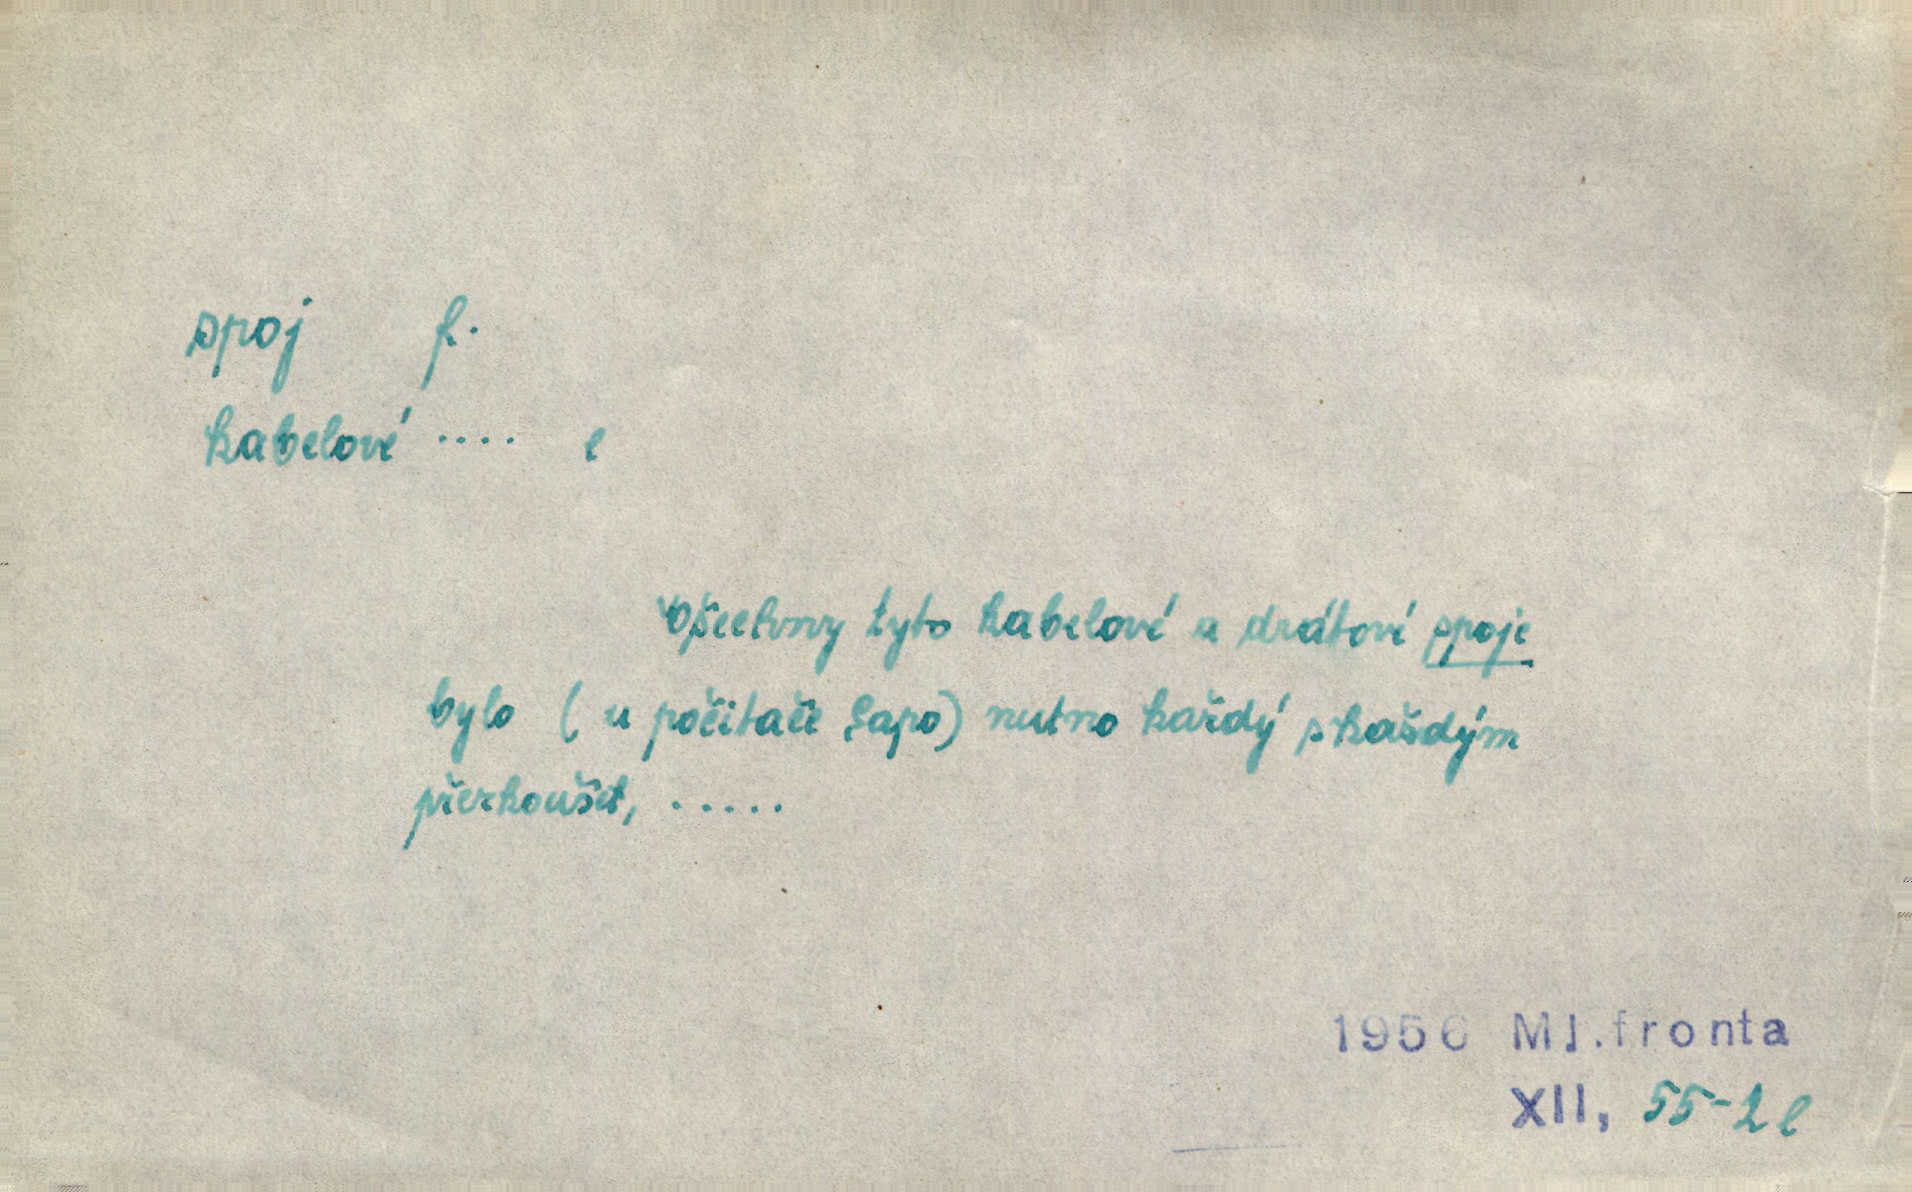 spoj f.
kabelové .... e
Všechny tyto kabelové a drátové spoje
bylo (u počitače Sapo) nutno každý s každým
přezkoušet, .....
1956 Ml.fronta
XII, 55-2 l